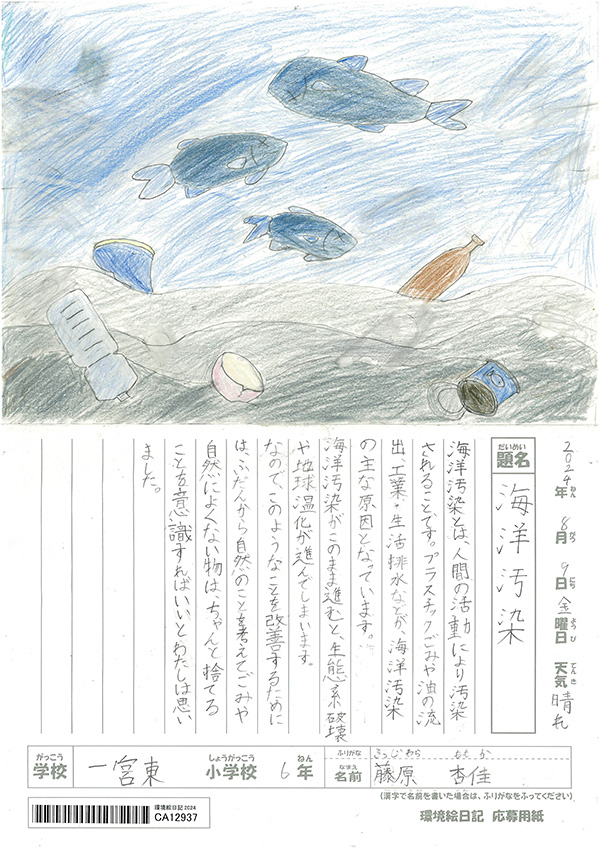 2024年 8月 9日 金曜日 天気 晴れ
ねん がつ にち ようび てんき
だいめい
題名 海洋汚染
海洋汚染とは、人間の活動により汚染
されることです。プラスチックごみや油の流
出、工業・生活排水などが、海洋汚染
の主な原因となっています。
海洋汚染がこのまま進むと、生態系破壊
や地球温化が進んでしまいます。
なので、このようなことを改善するために
は、ふだんから自然のことを考えてごみや
自然によくない物は、ちゃんと捨てる
ことを意識すればいいとわたしは思い
ました。
がっこう しょうがっこう ねん ふりがな ふじわら ももか
学校 一宮東 小学校 6年 なまえ 名前 藤原 杏佳
(漢字で名前を書いた場合は、ふりがなをふってください)
環境絵日記2024
CA12937
環境絵日記 応募用紙